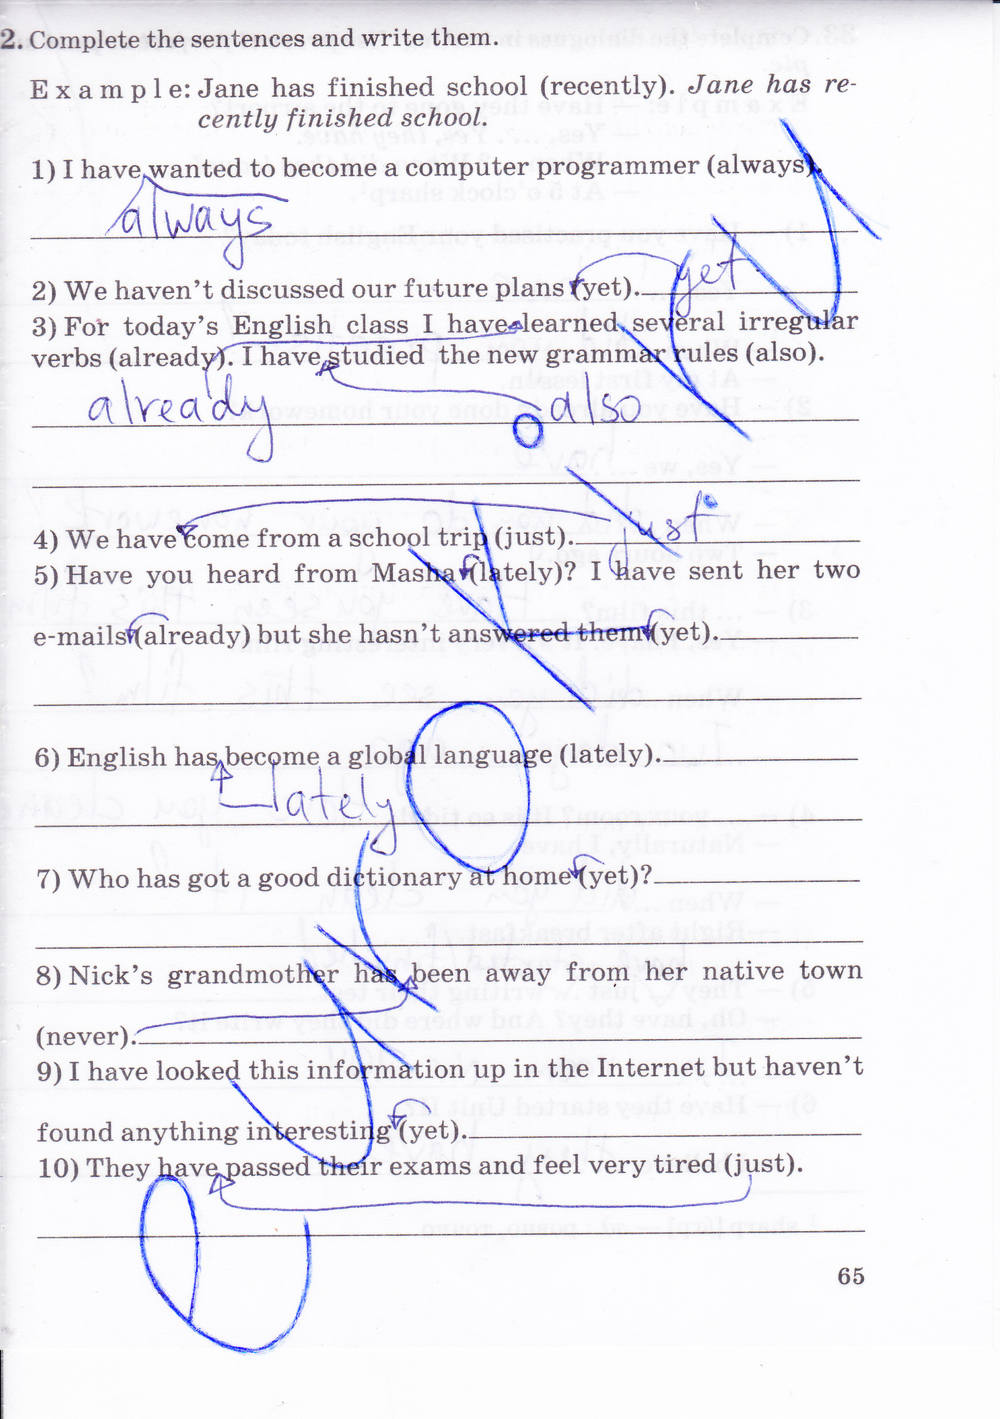 2. Complete the sentences and write them.
Example: Jane has finished school (recently). Jane has re-
cently finished school.
1) I have wanted to become a computer programmer (always).
always
2) We haven't discussed our future plans (yet).
yet
3) For today's English class I have learned several irregular
verbs (already). I have studied the new grammar rules (also).
already also
4) We have come from a school trip (just).
just
5) Have you heard from Masha (lately)? I have sent her two
e-mails (already) but she hasn't answered them (yet).
6) English has become a global language (lately).
lately
7) Who has got a good dictionary at home (yet)?
8) Nick's grandmother has been away from her native town
(never).
9) I have looked this information up in the Internet but haven't
found anything interesting (yet).
10) They have passed their exams and feel very tired (just).
65